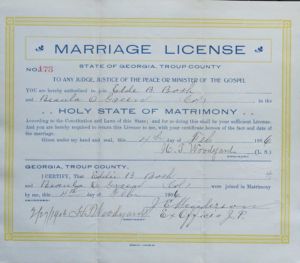 MARRIAGE LICENSE
STATE OF GEORGIA, TROUP COUNTY
No. 173
TO ANY JUDGE, JUSTICE OF THE PEACE OR MINISTER OF THE GOSPEL
YOU are hereby authorized to join Eddie B. Booth
and Beaula O. Col. in the
HOLY STATE OF MATRIMONY
According to the Constitution and Laws of this State; and for so doing this shall be your sufficient License. And
you are hereby required to return this License to me, with your certificate hereon of the fact and date
of the marriage.
Given under my hand and seal, this 4th day Feb 1906
H. T. Woodyard (L. S.)
GEORGIA, TROUP COUNTY.
I CERTIFY, That Eddie B. Booth
and Beaula O. Col. were joined in Matrimony
by me, this 4th day Feb 1906
J. C. Henderson
2/17/1906 H. T. Woodyard Ex Officio J. P.